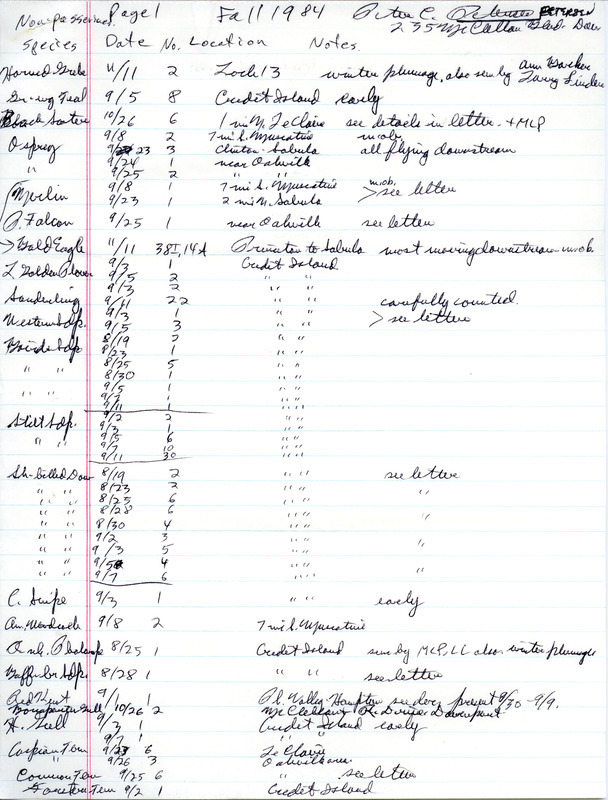 Nonpasserines Page 1 Fall 1984 Peter C. Petersen PETERSEN
Species Date No. Location Notes. 235 McClellan Blvd Dav
Ann Barker
Horned Grebe 11/11 2 Lock 13 winter plumage, also seen by Larry Linder
Gr-wg Teal 9/5 8 Credit Island early
Black Scoter 10/26 6 1 mi N. LeClaire see details in letter. + MLP
Osprey 9/8 2 7 mi S. Muscatine m.ob.
9/23 3 Clinton-Sabula all flying downstream
9/24 1 near Oakville
" 9/25 2 " "
Merlin 9/8 1 7 mi S. Muscatine m.ob.
9/23 1 2 mi N. Sabula > see letter
P. Falcon 9/25 1 near Oakville see letter
> Bald Eagle 11/11 38I, 14A Princeton to Sabula most moving downstream m.ob.
L. Golden Plover 9/3 1 Credit Island
9/5 2 " "
Sanderling 9/3 2 " "
9/11 22 " " carefully counted.
Western Sdp. 9/3 1 " "
9/5 3 " " > see letter
Bairds Sdp 8/19 2 " "
8/23 1 " "
" " 8/25 5 " "
8/30 1 " "
9/5 1 " "
" " 9/7 1 " "
9/11 1 " "
Stilt Sdp. 9/2 2 " "
9/3 1 " "
" " 9/5 6 " "
9/7 10 " "
9/11 30 " "
Sh-billed Dow 8/19 2 " " see letter
" " 8/23 2 " "
" " 8/25 6 " " "
" " 8/28 6 " "
" " 8/30 4 " " "
" " 9/2 3 " "
" " 9/3 5 " " "
" " 9/5 4 " "
" " 9/7 6 " " "
C. Snipe 9/3 1 " " early
Am. Woodcock 9/8 2 7 mi S. Muscatine
Phalarope 8/25 1 Credit Island seen by MLP, LL also winter plumage
Buffbr Sdp. 8/28 1 " " see letter
Red Knot 9/1 1 Pl. Valley, Hampton see docs present 8/30 - 9/9.
Bonapartes Gull 10/26 2 McClellan Davenport
H. Gull 9/3 1 Credit Island early
9/7 1 " "
Caspian Tern 9/23 6 LeClaire
" 9/26 3 Oakville area
Common Tern 9/25 6 " see letter
Forsters Tern 9/2 1 Credit Island